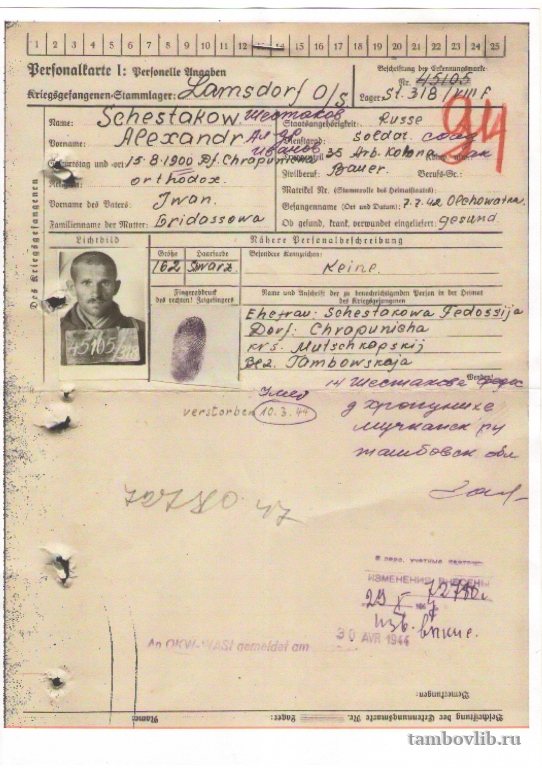 1 2 3 4 5 6 7 8 9 10 11 12 13 14 15 16 17 18 19 20 21 22 23 24 25
Personalkarte I: Personelle Angaben
Kriegsgefangenen-Stammlager: Lamsdorf O/S.
Beschriftung der Erkennungsmarke
Nr. 45105
Lager: St. 318/VIII F
94
Des Kriegsgefangenen
Name: Schestakow Шестаков
Vorname: Alexandr Ал-др
Иванов
Geburtstag und -ort: 15.8.1900 Df. Chrapunicha
Religion: orthodox.
Vorname des Vaters: Iwan.
Familienname der Mutter: Gridassowa
Staatsangehörigkeit: Russe
Dienstgrad: soldat. солд
Truppenteil: 35 Arb. Kolone
Zivilberuf: Bauer. Berufs-Gr.:
Matrikel Nr. (Stammrolle des Heimatstaates):
Gefangennahme (Ort und Datum): 7.7.42 Olchowatka.
Ob gesund, krank, verwundet eingeliefert: gesund.
Lichtbild
45105/318
Größe Haarfarbe
162 Swarz.
Fingerabdruck
des rechten! Zeigefingers
Nähere Personalbeschreibung
Besondere Kennzeichen:
Keine.
Name und Anschrift der zu benachrichtigenden Person in der Heimat
des Kriegsgefangenen
Ehefrau: Schestakowa Fedossija
Dorf: Chrapunicha
Krs. Mutschkapskij
Bez. Tambowskaja
Wenden!
Шестакова Федос
д Хропуниха
ташбовск обл
Умер
verstorben 10.3.44
ИЗМЕНЕНИЯ ВНЕСЕНЫ
72780
29 V
30 AVR 1944
An OKW-WASt gemeldet am
Bemerkungen:
Beschriftung der Erkennungsmarke Nr. Lager: Name:
tambovlib.ru